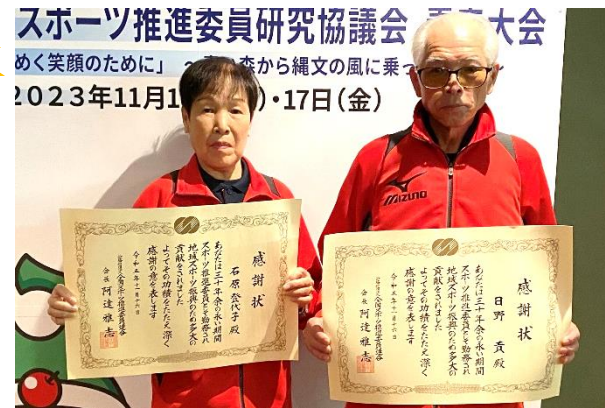 スポーツ推進委員研究協議会
大会
めく笑顔のために」
森から縄文の風に乗っ
2023年11月1
)・17日(金)
MIZUNO
感謝状
石原登代子殿
あなたは三十年余の永い期間
スポーツ推進委員として勤務され
地域スポーツ振興のため多大の
貢献をされました
よってその功績をたたえ深く
感謝の意を表します
令和五年十一月十六日
会長 阿達雅志
感謝状
日野貢殿
あなたは三十年余の永い期間
スポーツ推進委員として勤務され
地域スポーツ振興のため多大の
貢献をされました
よってその功績をたたえ深く
感謝の意を表します
令和五年十一月十六日
会長 阿達雅志